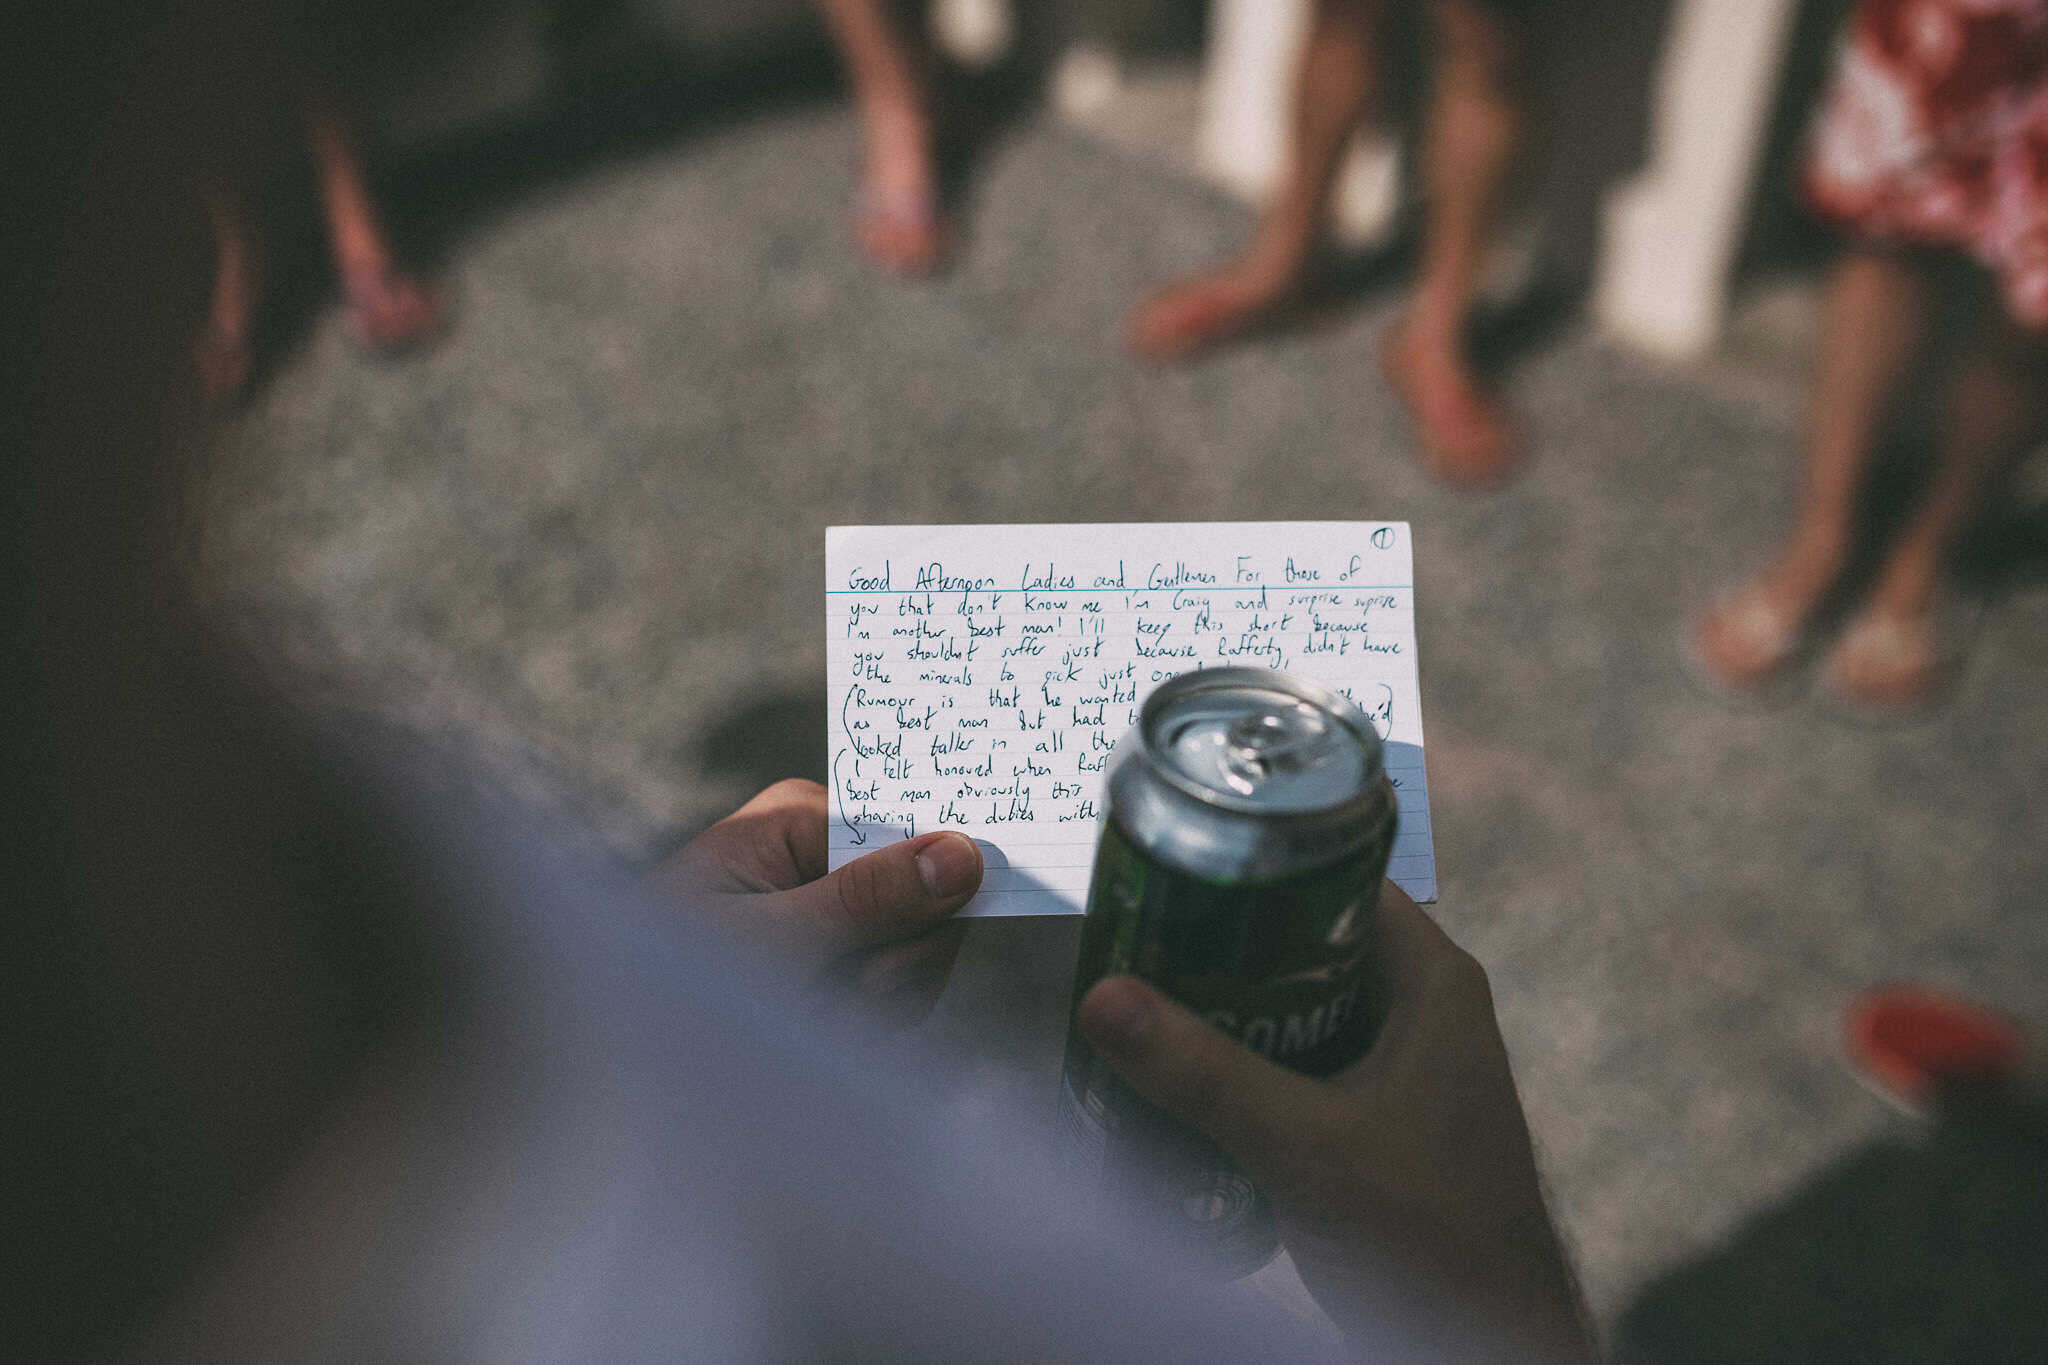 1
Good Afternoon Ladies and Gentlemen. For those of
you that don't know me I'm Craig and surprise suprise
I'm another best man! I'll keep this short because
you shouldn't suffer just because Rafferty didn't have
the minerals to pick just one
Rumour is that he wanted me
as best man but had he'd
looked taller in all the
I felt honoured when Raff
best man obviously this
sharing the duties with
SOME